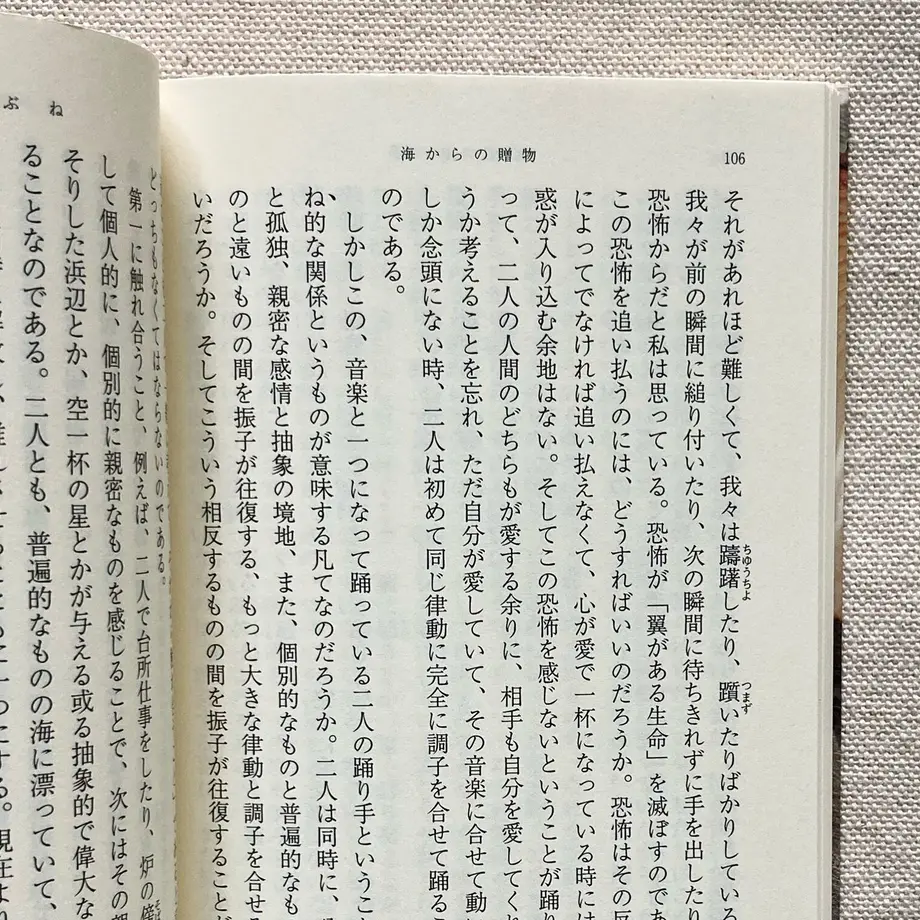 海からの贈物
106
それがあれほど難しくて、我々は躊躇したり、躓いたりばかりしている
ちゆうちよ
つまず
我々が前の瞬間に縋り付いたり、次の瞬間に待ちきれずに手を出したり
恐怖からだと私は思っている。恐怖が「翼がある生命」を滅ぼすのであ
この恐怖を追い払うのには、どうすればいいのだろうか。恐怖はその反
によってでなければ追い払えなくて、心が愛で一杯になっている時には
惑が入り込む余地はない。そしてこの恐怖を感じないということが踊り
って、二人の人間のどちらもが愛する余りに、相手も自分を愛してくれ
うか考えることを忘れ、ただ自分が愛していて、その音楽に合せて動い
しか念頭にない時、二人は初めて同じ律動に完全に調子を合せて踊るこ
のである。
しかしこの、音楽と一つになって踊っている二人の踊り手ということ
ね的な関係というものが意味する凡てなのだろうか。二人は同時に、
と孤独、親密な感情と抽象の境地、また、個別的なものと普遍的なも
のと遠いものの間を振子が往復する、もっと大きな律動と調子を合せる
いだろうか。そしてこういう相反するものの間を振子が往復することが
ぶね
どっちもなくてはならないのである。
第一に触れ合うこと、例えば、二人で台所仕事をしたり、炉の傍
して個人的に、個別的に親密なものを感じることで、次にはその親
そりした浜辺とか、空一杯の星とかが与える或る抽象的で偉大な
ることなのである。二人とも、普遍的なものの海に漂っていて、